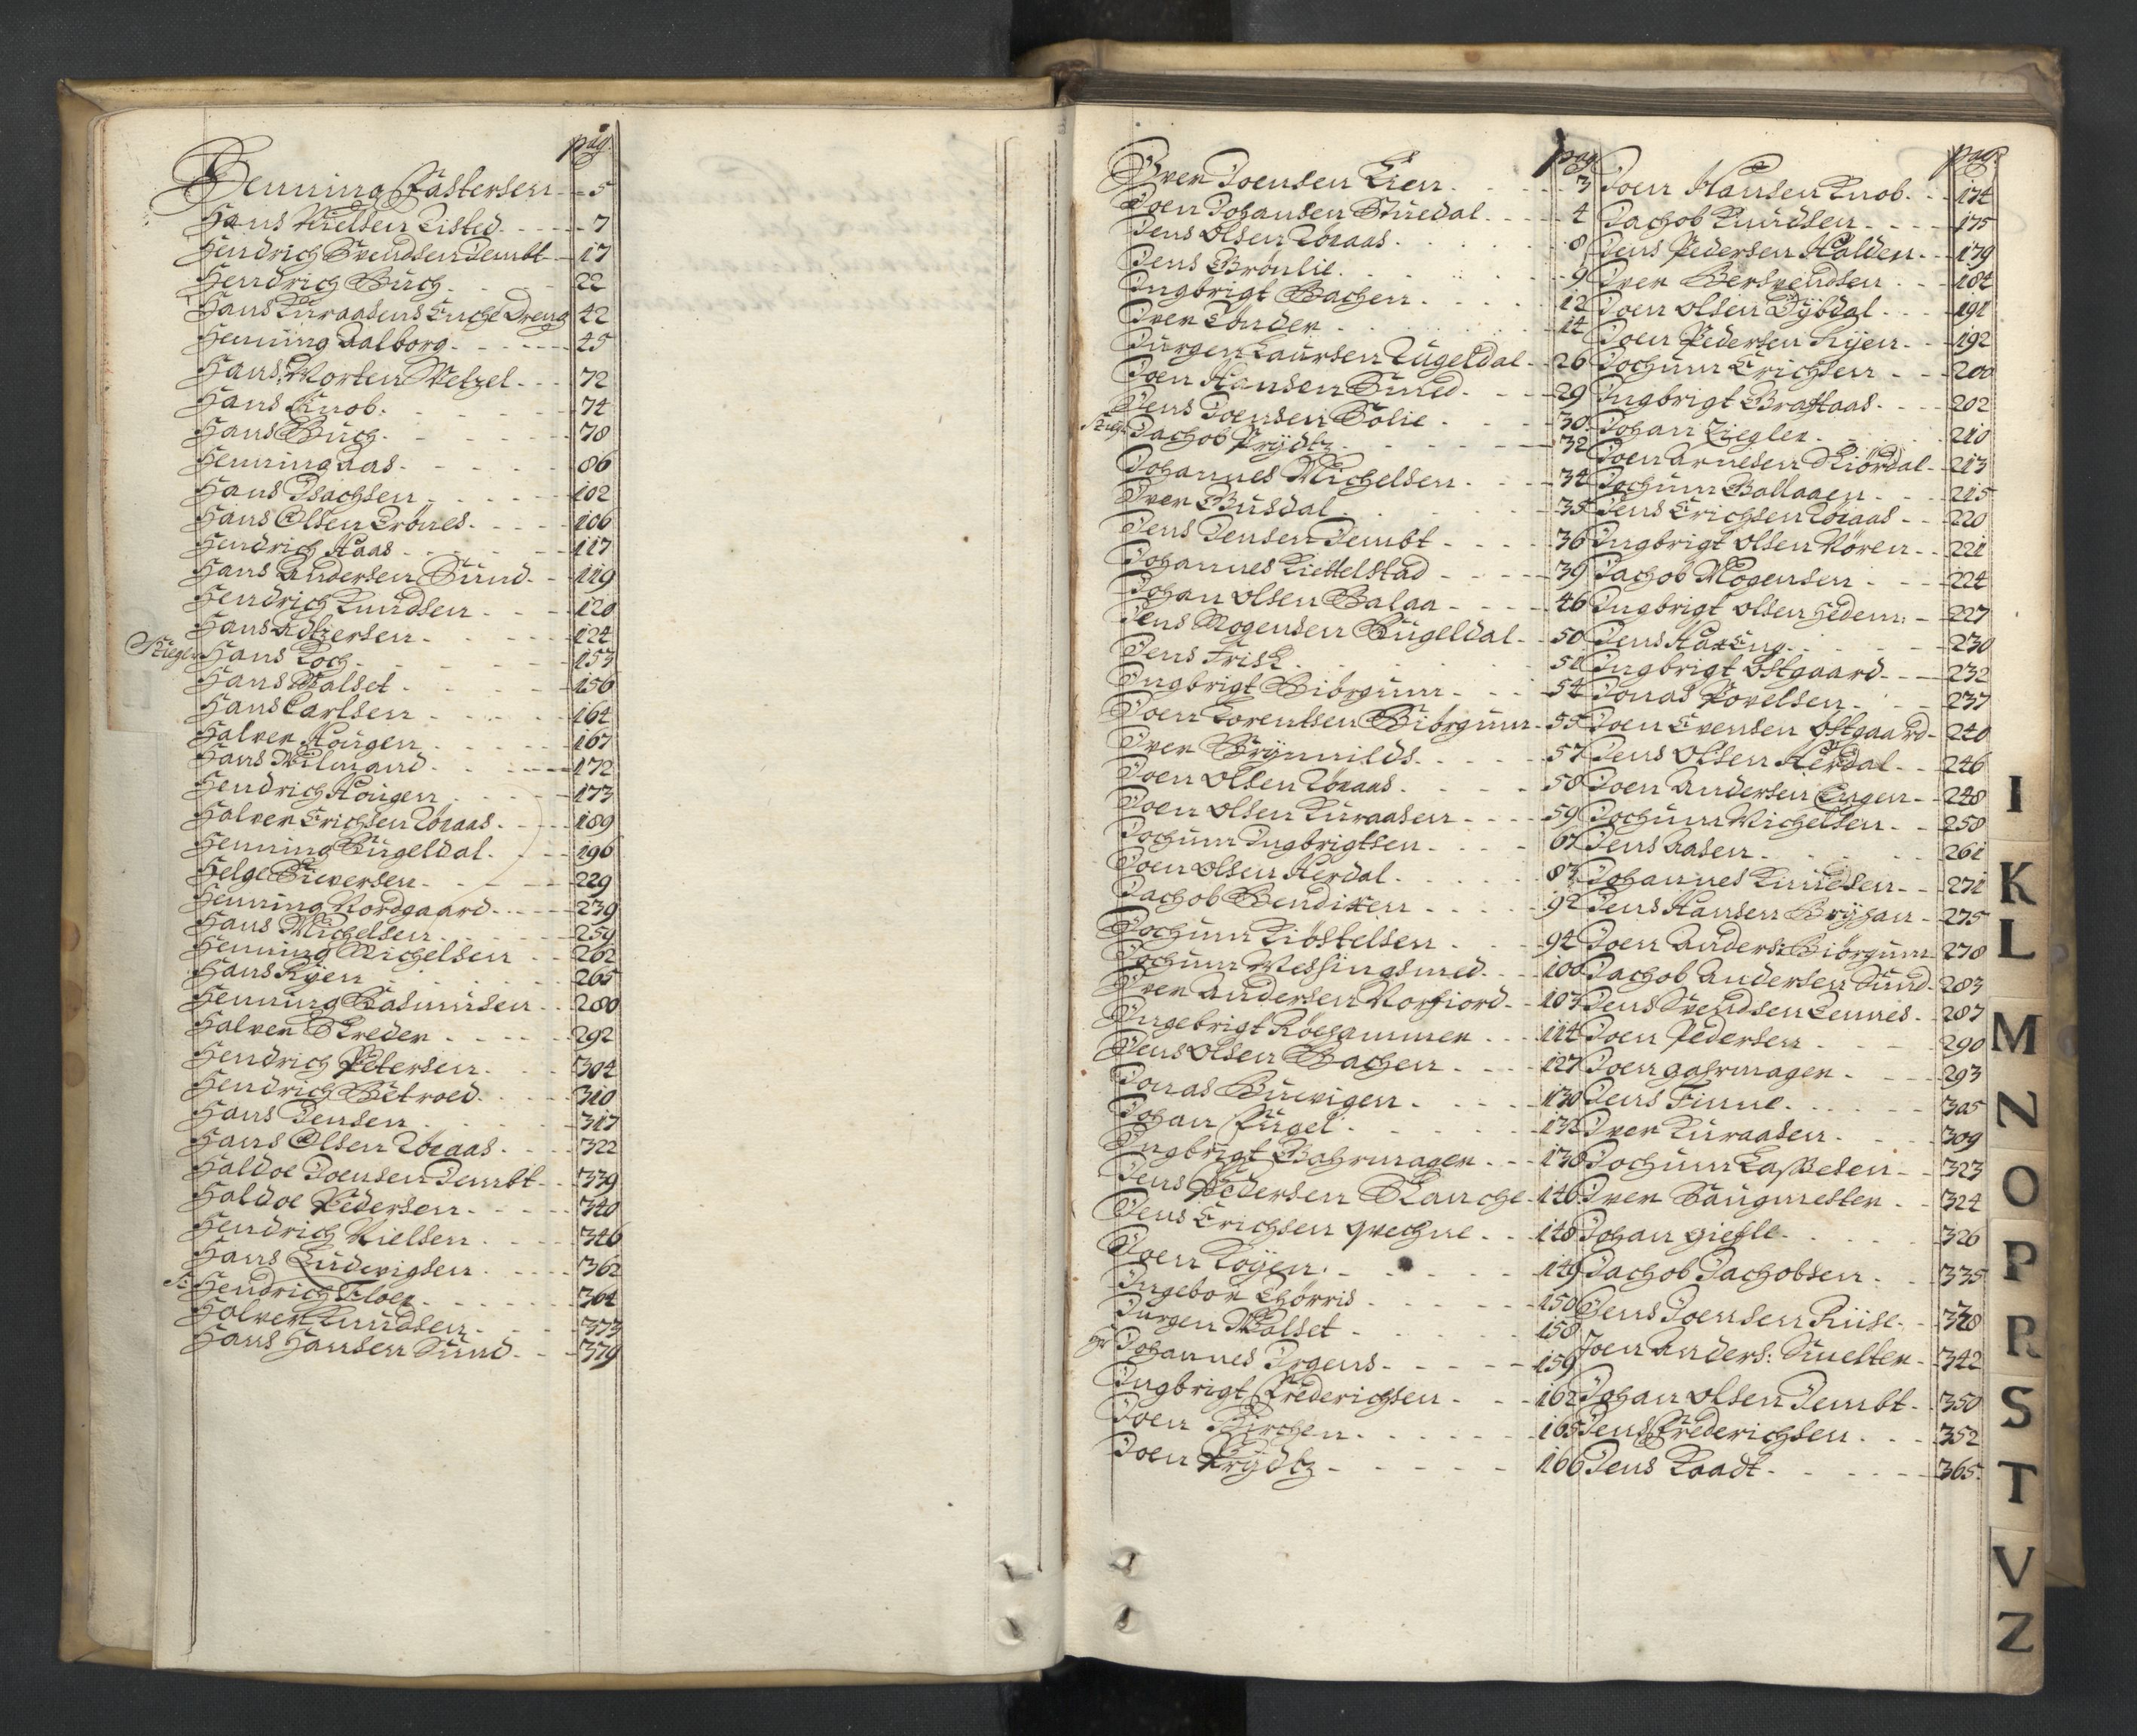 pag.
Henning Fastersen - - 5
Hans Nielsen Listed - - - - - 7
Hendrich Svendsen Jembt - 17
Hendrich Buch - - - - 22
Hans Kuraasens Enche Dreng 42
Henning Aalborg - - - - - 45
Hans Morten Wetzel - - - 72
Hans Knob - - - - - 74
Hans Buch - - - - - 78
Henning Aas - - - - - 86
Hans Isachsen - - - - - 102
Hans Olsen Trönes - - - - 106
Hendrich Haas - - - - - 117
Hans Andersen Sund - - 119
Hendrich Knudsen - - - - 120
Hans - - - - - 124
Stiger Hans Koch - - - - - 153
Hans Walset - - - - - 156
Hans Carlsen - - - - - 164
Halver Hougen - - - - - 167
Hans Wilmand - - - - - 172
Hendrich Hougen - - - - - 173
Halver Erichsen Röraas - - - 189
Henning Bugeldal - - - - 196
Helge Siversen - - - - - 229
Henning Nordgaard - - - - - 239
Hans Michelsen - - - - - 259
Henning Michelsen - - - 262
Hans Ryen - - - - - 265
Henning Rasmusen - - 280
Halver Skreder - - - - - 292
Hendrich Petersen - - - 304
Hendrich - - - - 310
Hans Jensen - - - - - 317
Hans Olsen Röraas - - - 322
Haldoe Joensen Jembt - - 339
Haldoe Pedersen - - - - - 340
Hendrich Nielsen - - - - 346
Hans Ludevigsen - - - - 362
St: Hendrich Floer - - - - - 364
Halver Knudsen - - - - 373
Hans Hansen Sund - - - 379
pag.
Iver Joensen Lien - - - - 3
Joen Johansen Stuedal - - - - 4
Jens Olsen Röraas - - - - - 8
Jens Brönlie - - - - - 9
Ingbrigt Bachen - - - - 12
Iver Tönder - - - - - 14
Jürgen Laursen Rugeldal - - 26
Joen Hansen Smed - - - - 29
Jens Joensen Solie - - - - 30
Stiger Jachob Prydtz - - - - - 32
Johannes Michelsen - - - - 34
Iver Busdal - - - - - 35
Jens Jensen Jembt - - - - 36
Johannes Kiettelstad - - - - - 39
Johan Olsen Balaa - - - - 46
Jens Mogensen Bugeldal - - 50
Jens Frisk - - - - - 51
Ingbrigt Biörgum - - - 54
Joen Lorentsen Biörgum - 55
Iver Brynnilds - - - - - 57
Joen Olsen Röraas - - - - - 58
Joen Olsen Kuraasen - - - - 59
Jochum Ingbrigtsen - - - - 67
Joen Olsen Herdal - - - - - 87
Jachob Bendixen - - - - - 92
Jochum Kiöstelsen - - - - 94
Jochum Messingsmed - - - 100
Iver Andersen Norfiord - - 107
Ingebrigt Röehammer - - - 114
Jens Olsen Bachen - - - - 127
Jonas Burvigen - - - - - 130
Johan Fügel - - - - - 132
Ingbrigt Bahrmager - - - 138
Jens Pedersen Blanche - 146
Jens Erichsen Qvechne - - - 148
Joen Köyen - - - - - 149
Ingebor Chörris - - - - - 150
Jürgen Walset - - - - - 158
Hr Johannes Irgens - - - - - 159
Ingbrigt Frederichsen - - - 162
Joen Birchen - - - - - 165
Joen Prydtz - - - - - 166
pag.
Joen Hansen Knob - - - 174
Jachob Knudsen - - - - 175
Jens Pedersen Halden - - - 179
Iver Bersvendsen - - - 184
Joen Olsen Dybdal - - - - 191
Joen Pedersen Ryen - - - 192
Jochum Erichsen - - - 200
Ingbrigt Brattaas - - - - 202
Johan Ziegler - - - - - 210
Joen Arnesen Skiördal - - 213
Jochum Ballaaen - - - 215
Jens Erichsen Röraas - - - 220
Ingbrigt Olsen Nören - - 221
Jachob Mogensen - - - - 224
Ingbrigt Olsen Hedem: - - 227
Jens Haxeng - - - - - 230
Ingbrigt Östgaard - - - 232
Jonas Povelsen - - - 237
Joen Evensen Östgaard - 240
Jens Olsen Herdal - - 246
Joen Andersen Engen - - 248
Jochum Michelsen - - - 258
Jens Aasen - - - - - 261
Johannes Knudsen - - - 271
Jens Hansen Bryhan - - 275
Joen Anders: Biörgum 278
Jachob Andersen Sund - 283
Jens Svendsen Lennes - - 287
Joen Pedersen - - - - 290
Joen Gahrmager - - - - 293
Jens Finne - - - - - 305
Iver Kuraasen - - - - 309
Jochum Lassesen - - 323
Iver Saugmester - - 324
Johan Giesle - - - - - 326
Jachob Jachobsen - - - 335
Jens Joensen Riise - - 338
Joen Anders: Smelter - - 342
Johan Olsen Jembt - - 350
Jens Frederichsen - - - - 352
Jens Kaadt - - - - - 365
I
K
L
M
N
O
P
R
S
T
V
Z